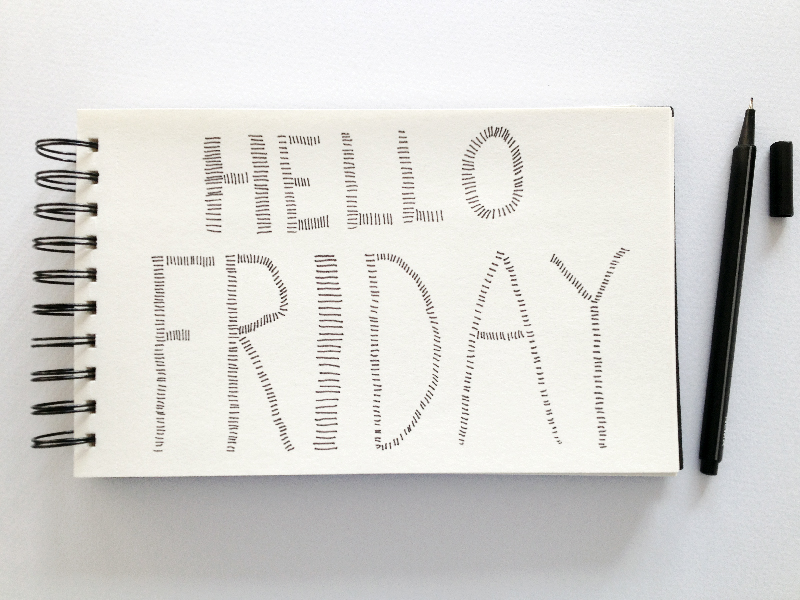 HELLO
FRIDAY